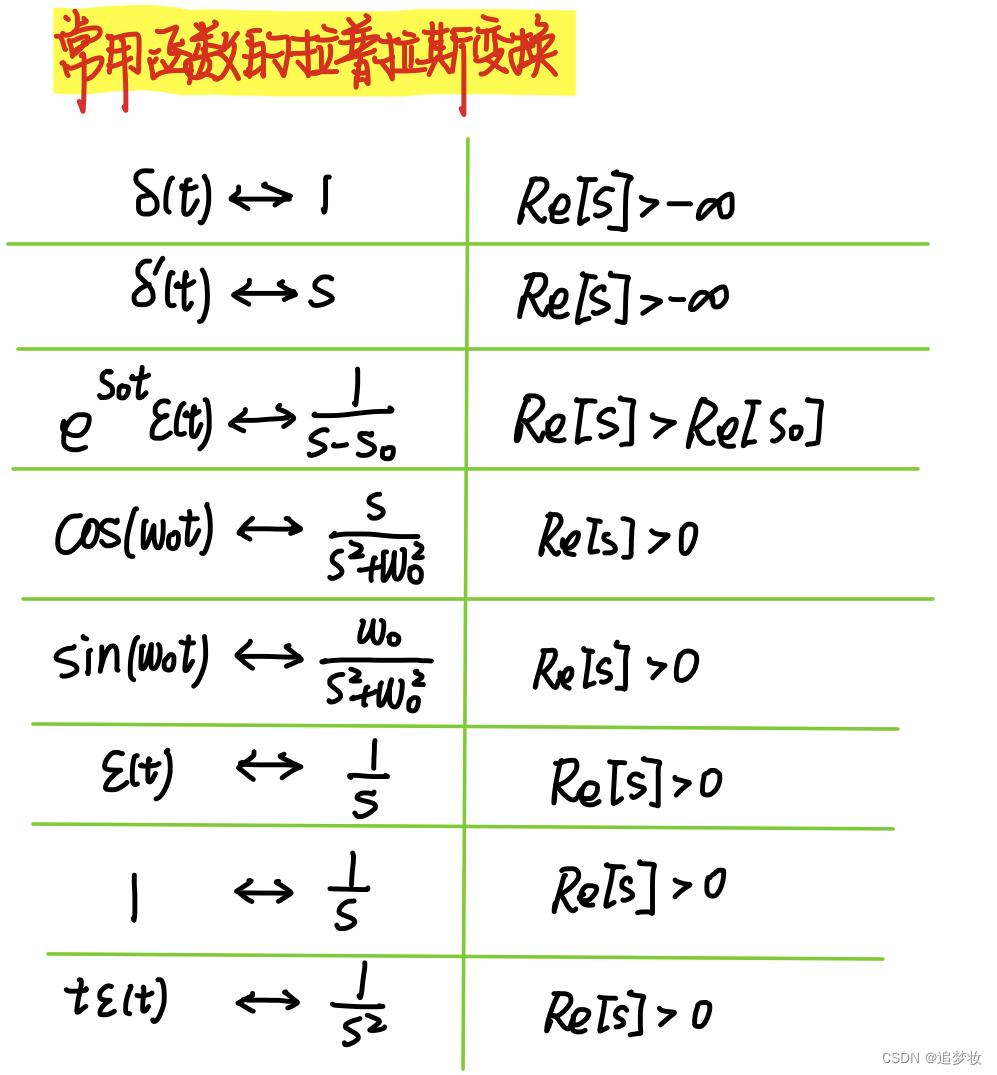 常用函数的拉普拉斯变换
δ(t) ↔ 1 Re[s] > -∞
δ'(t) ↔ s Re[s] > -∞
e^{s₀t} ε(t) ↔ 1/(s-s₀) Re[s] > Re[s₀]
cos(w₀t) ↔ s/(s²+w₀²) Re[s] > 0
sin(w₀t) ↔ w₀/(s²+w₀²) Re[s] > 0
ε(t) ↔ 1/s Re[s] > 0
1 ↔ 1/s Re[s] > 0
tε(t) ↔ 1/s² Re[s] > 0
CSDN @追梦妆